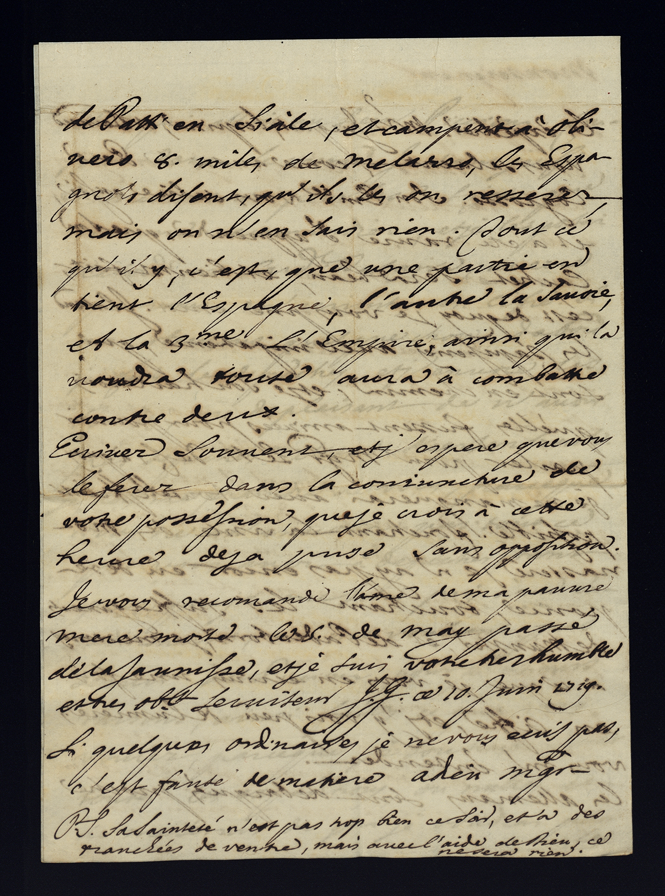 de Patti en Sicile, et campents à Oli-
vero 8. miles de Melazzo, les Espa-
gnols disent, qu'ils les on resserez,
mais on n'en sais rien. Tout ce
qu'il y, c'est, que une partie en
tient l'Espagne, l'autre la Savoie,
et la 3me L'Empire, ainsi qui la
voudra toute aura à combattre
contre deux.
Ecrivez souvent, et j'espere que vous
le ferez dans la conjuncture de
votre possession, que je crois à cette
heure deja prise sans opposition.
Je vous recomande l'ame de ma pauvre
mere morte le de may passé
de la jaunisse, et je suis votre tres humble
et tres obt. serviteur J.G. ce 10. Juin 1719.
Si quelques ordinaires je ne vous ecris pas,
c'est faute de matiere adieu mgr
P.S. Sa Sainteté n'est pas trop bien ce soir, et a des
tranchées de ventre, mais avec l'aide de Dieu, ce
ne sera rien.